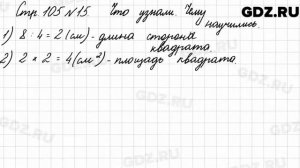 Стр. 105 № 15. Что узнали. Чему
научились
1) 8 : 4 = 2 (см) - длина стороны
квадрата.
2) 2 × 2 = 4 (см²) - площадь квадрата.
GDZ.RU
GDZ.RU
GDZ.RU
GDZ.RU